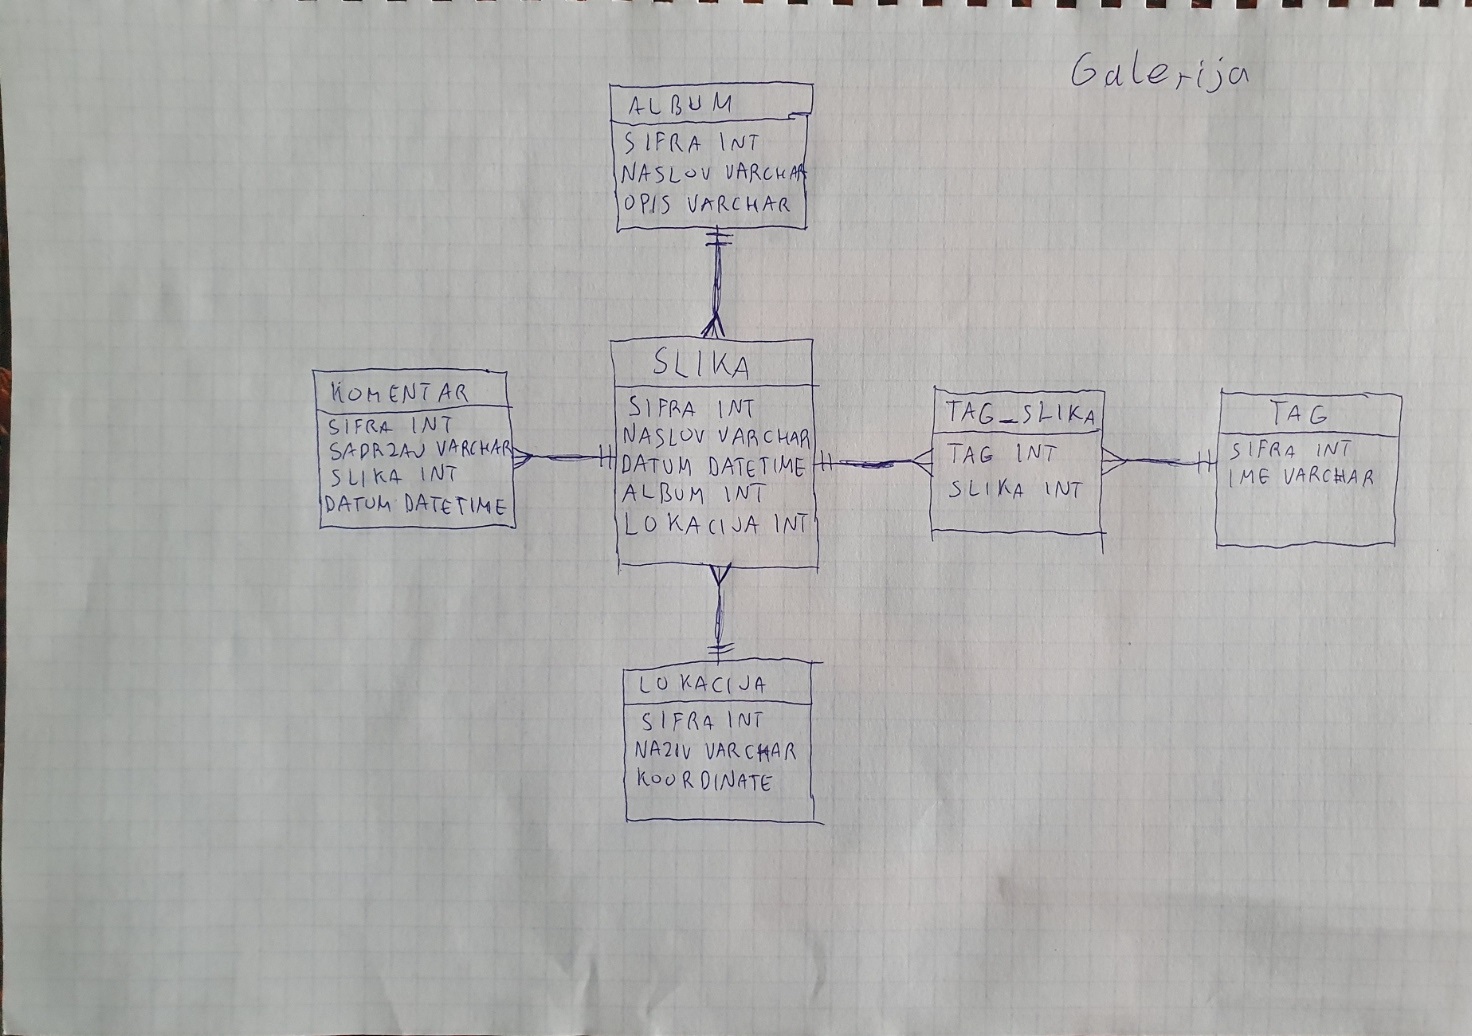 Galerija
ALBUM
SIFRA INT
NASLOV VARCHAR
OPIS VARCHAR
KOMENTAR
SIFRA INT
SADRZAJ VARCHAR
SLIKA INT
DATUM DATETIME
SLIKA
SIFRA INT
NASLOV VARCHAR
DATUM DATETIME
ALBUM INT
LOKACIJA INT
TAG_SLIKA
TAG INT
SLIKA INT
TAG
SIFRA INT
IME VARCHAR
LOKACIJA
SIFRA INT
NAZIV VARCHAR
KOORDINATE